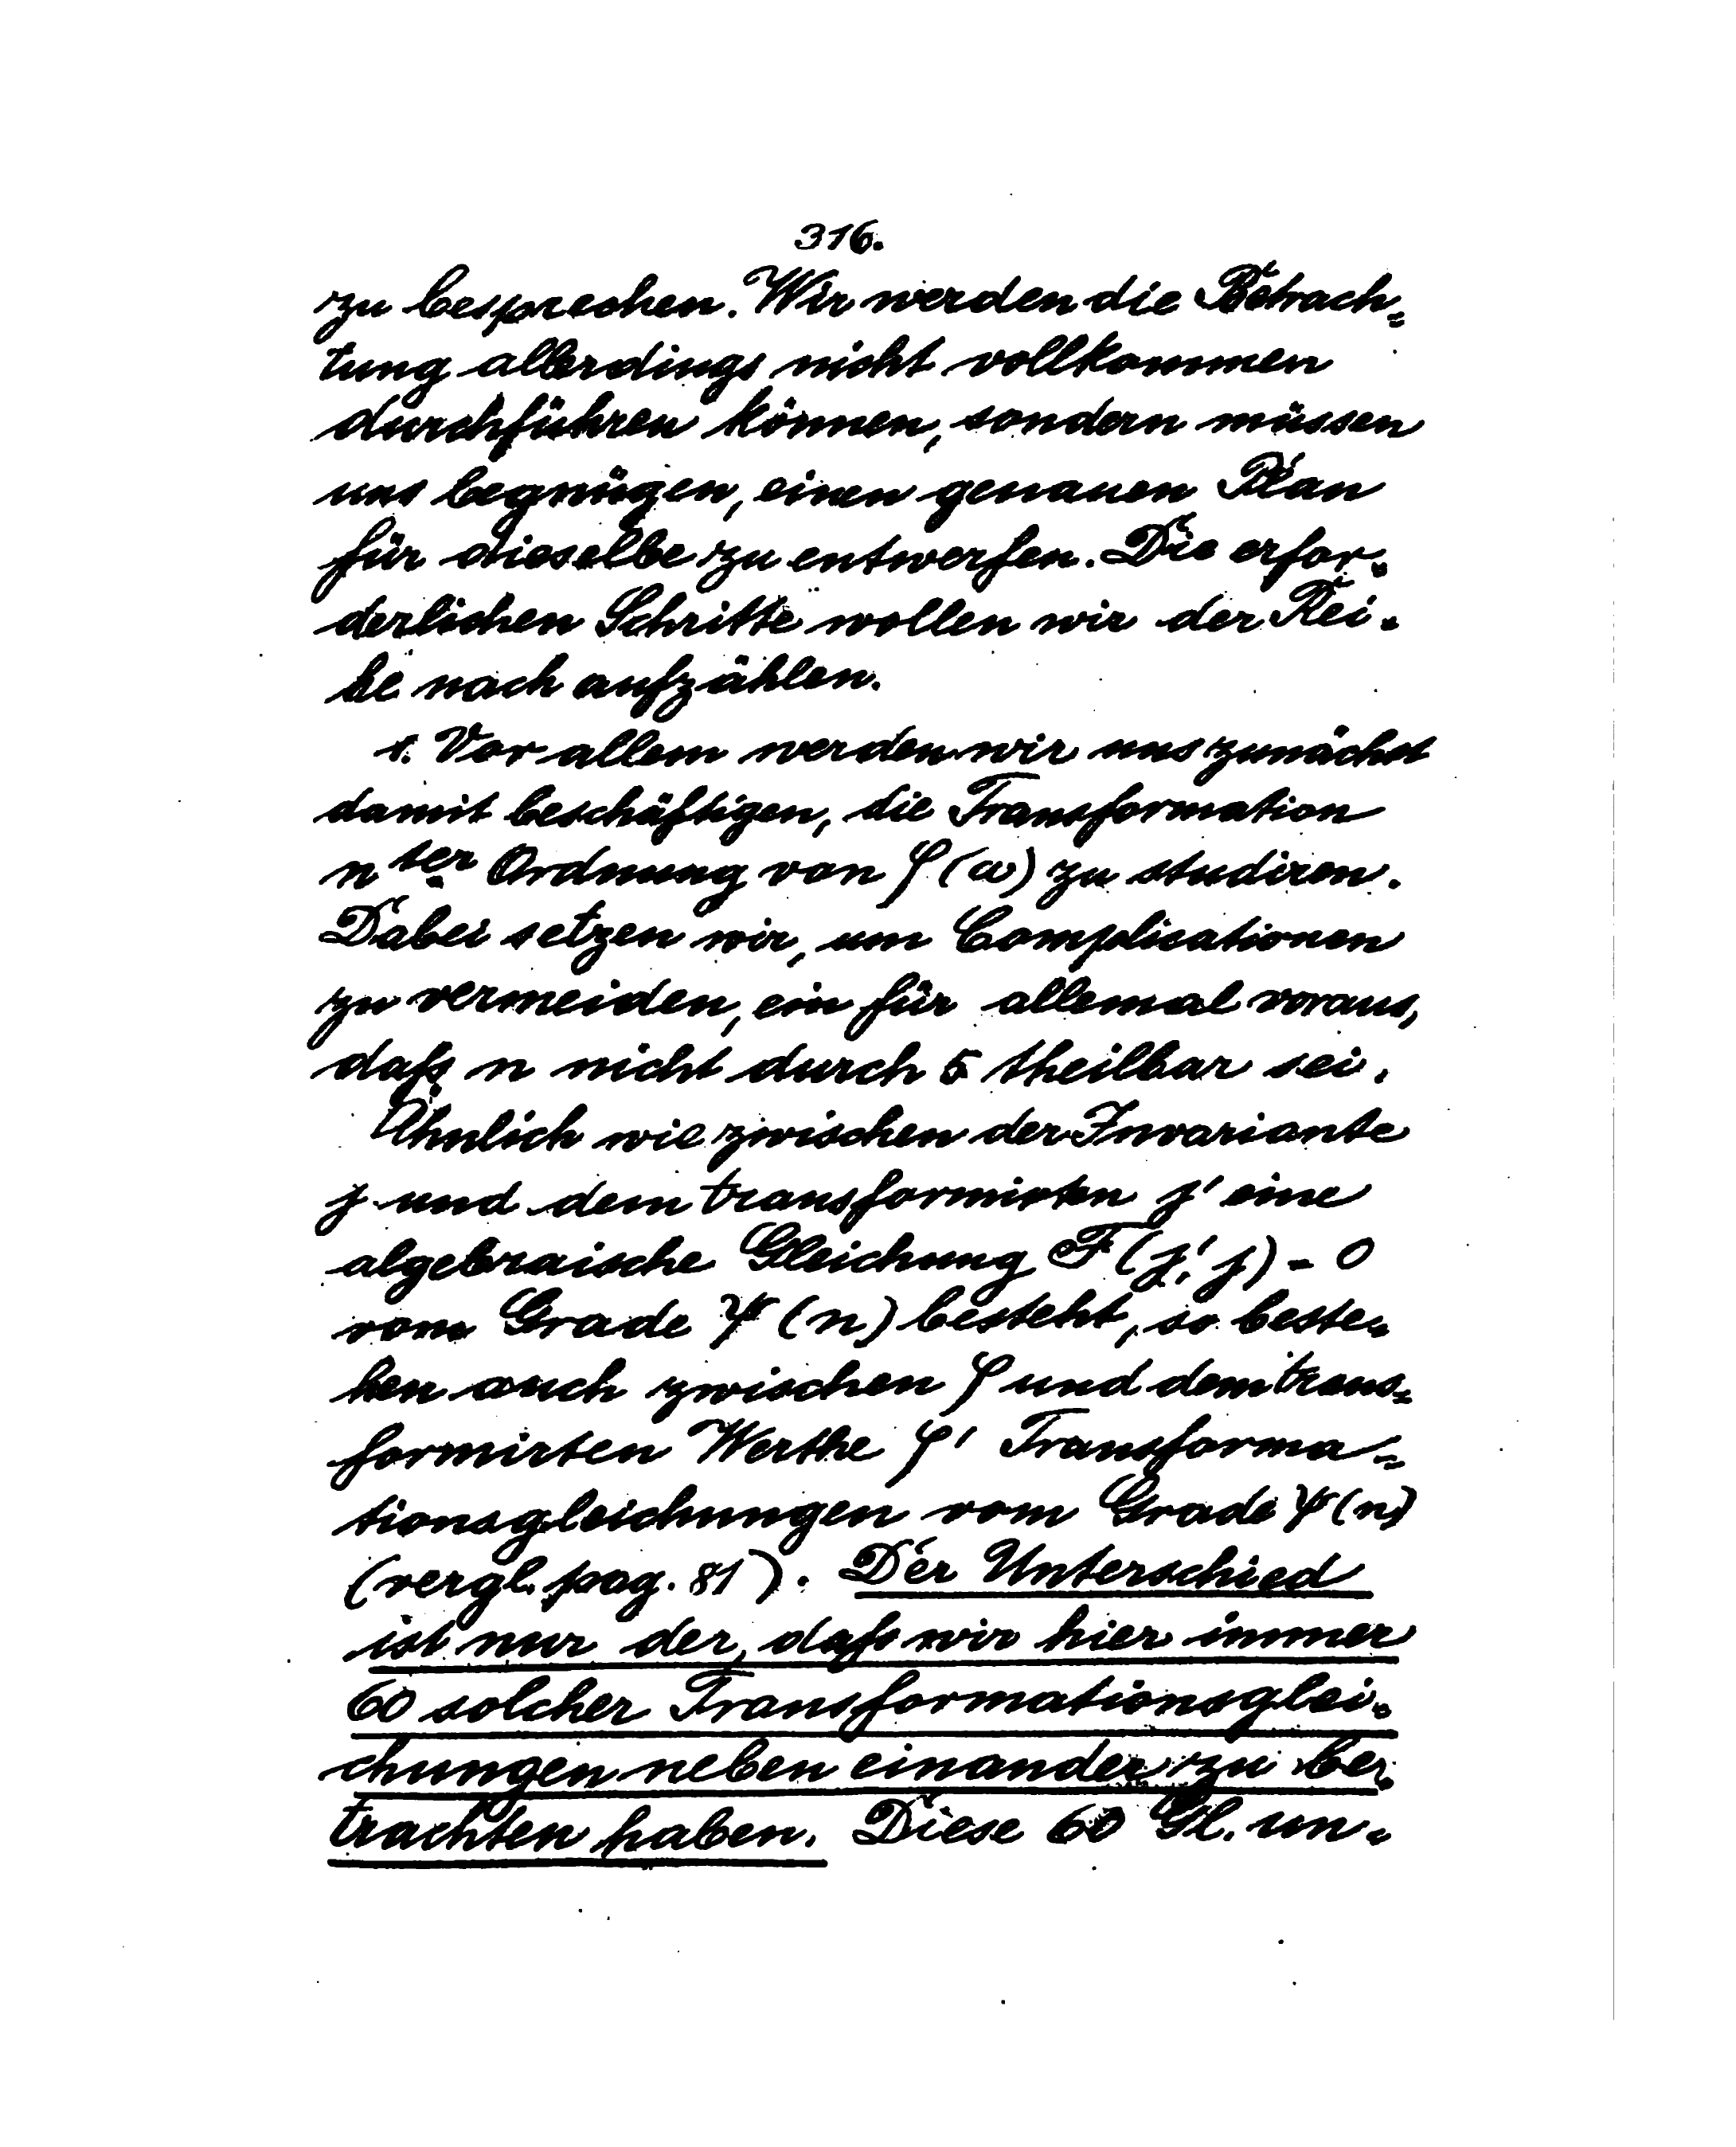 316.
zu besprechen. Wir werden die Betrach=
tung allerdings nicht vollkommen
durchführen können, sondern müssen
uns begnügen, einen genauen Plan
für dieselbe zu entwerfen. Die erfor=
derlichen Schritte wollen wir der Rei=
he nach aufzählen.
1. Vor allem werden wir uns zunächst
damit beschäftigen, die Transformation
n ter Ordnung von φ(ω) zu studiren.
Dabei setzen wir, um Complicationen
zu vermeiden, ein für allemal voraus,
daß n nicht durch 5 theilbar sei.
Ähnlich wie zwischen der Invariante
j und dem transformirten j' eine
algebraische Gleichung F(j', j) = 0
vom Grade ψ(n) besteht, so beste=
hen auch zwischen φ und dem trans=
formirten Werthe φ' Transforma=
tionsgleichungen vom Grade ψ(n)
(vergl. pag. 81). Der Unterschied
ist nur der, daß wir hier immer
60 solcher Transformationsglei=
chungen neben einander zu be=
trachten haben. Diese 60 Gl. un=